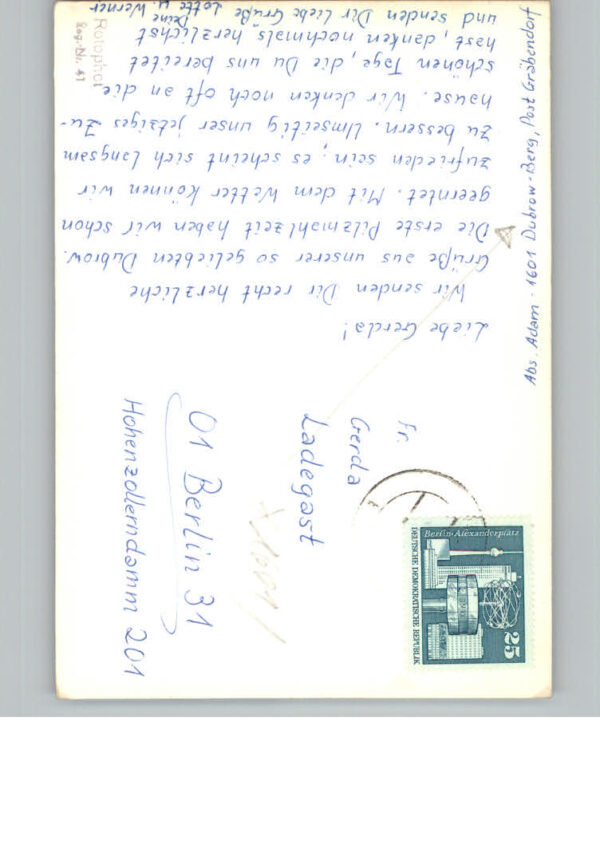 Liebe Gerda!
Wir senden Dir recht herzliche
Grüße aus unserer so geliebten Dubrow.
Die erste Pilzmahlzeit haben wir schon
geerntet. Mit dem Wetter können wir
zufrieden sein; es scheint sich langsam
zu bessern. Umseitig unser jetziges Zu-
hause. Wir denken noch oft an die
schönen Tage, die Du uns bereitet
hast, danken nochmals herzlichst
und senden Dir liebe Grüße
Deine
Lotte u. Werner
Abs. Adam - 1601 Dubrow-Berg, Post Gräbendorf
Fr.
Gerda
Ladegast
01 Berlin 31
Hohenzollerndamm 201
Berlin-Alexanderplatz
DEUTSCHE DEMOKRATISCHE REPUBLIK
25
Rotophot
Reg.-Nr. 41